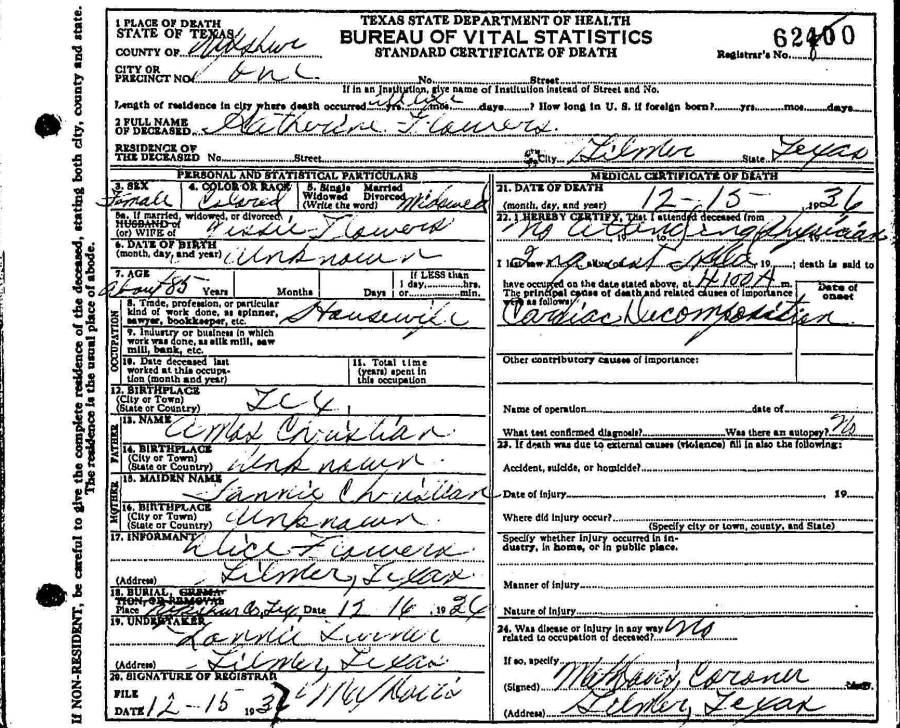 TEXAS STATE DEPARTMENT OF HEALTH
BUREAU OF VITAL STATISTICS
STANDARD CERTIFICATE OF DEATH
62400
Registrar's No.
1 PLACE OF DEATH
STATE OF TEXAS
COUNTY OF Upshur
CITY OR
PRECINCT NO. One No. Street
If in an Institution, give name of Institution instead of Street and No.
Length of residence in city where death occurred yrs. mos. days ? How long in U. S. if foreign born? yrs. mos. days
2 FULL NAME
OF DECEASED Katherine Flowers.
RESIDENCE OF
THE DECEASED No. Street City Gilmer State Texas
PERSONAL AND STATISTICAL PARTICULARS
3. SEX Female
4. COLOR OR RACE Colored
5. Single Married
Widowed Divorced
(Write the word) Widowed
5a. If married, widowed, or divorced
HUSBAND of
(or) WIFE of Flowers
6. DATE OF BIRTH
(month, day, and year) Unknown
7. AGE
About 85 Years Months Days
If LESS than
1 day, hrs.
or min.
OCCUPATION
8. Trade, profession, or particular
kind of work done, as spinner,
sawyer, bookkeeper, etc. Housewife
9. Industry or business in which
work was done, as silk mill, saw
mill, bank, etc.
10. Date deceased last
worked at this occupa-
tion (month and year)
11. Total time
(years) spent in
this occupation
12. BIRTHPLACE
(City or Town)
(State or Country) Tex.
FATHER
13. NAME Amos Christian
14. BIRTHPLACE
(City or Town)
(State or Country) Unknown.
MOTHER
15. MAIDEN NAME
Fannie Christian
16. BIRTHPLACE
(City or Town)
(State or Country) Unknown
17. INFORMANT Alice Flowers
(Address) Gilmer, Texas
18. BURIAL, CREMA-
TION, OR REMOVAL
Place Upshur Co, Tex, Date 12 16 1936
19. UNDERTAKER
Lonnie Turner
(Address) Gilmer, Texas
20. SIGNATURE OF REGISTRAR
FILE
DATE 12-15 193
MEDICAL CERTIFICATE OF DEATH
21. DATE OF DEATH
(month, day, and year) 12-15 1936
22. I HEREBY CERTIFY, That I attended deceased from
No Attending Physician
19 to 19
I last saw h alive on 19 ; death is said to
have occurred on the date stated above, at 4:00 A m.
The principal cause of death and related causes of importance
were as follows:
Date of
onset
Cardiac Decomposition
Other contributory causes of importance:
Name of operation date of
What test confirmed diagnosis? Was there an autopsy? No
23. If death was due to external causes (violence) fill in also the following:
Accident, suicide, or homicide?
Date of injury , 19
Where did injury occur?
(Specify city or town, county, and State)
Specify whether injury occurred in in-
dustry, in home, or in public place.
Manner of injury
Nature of injury
24. Was disease or injury in any way
related to occupation of deceased? No
If so, specify
(Signed) Coroner
(Address) Gilmer, Texas
If NON-RESIDENT, be careful to give the complete residence of the deceased, stating both city, county and state.
The residence is the usual place of abode.